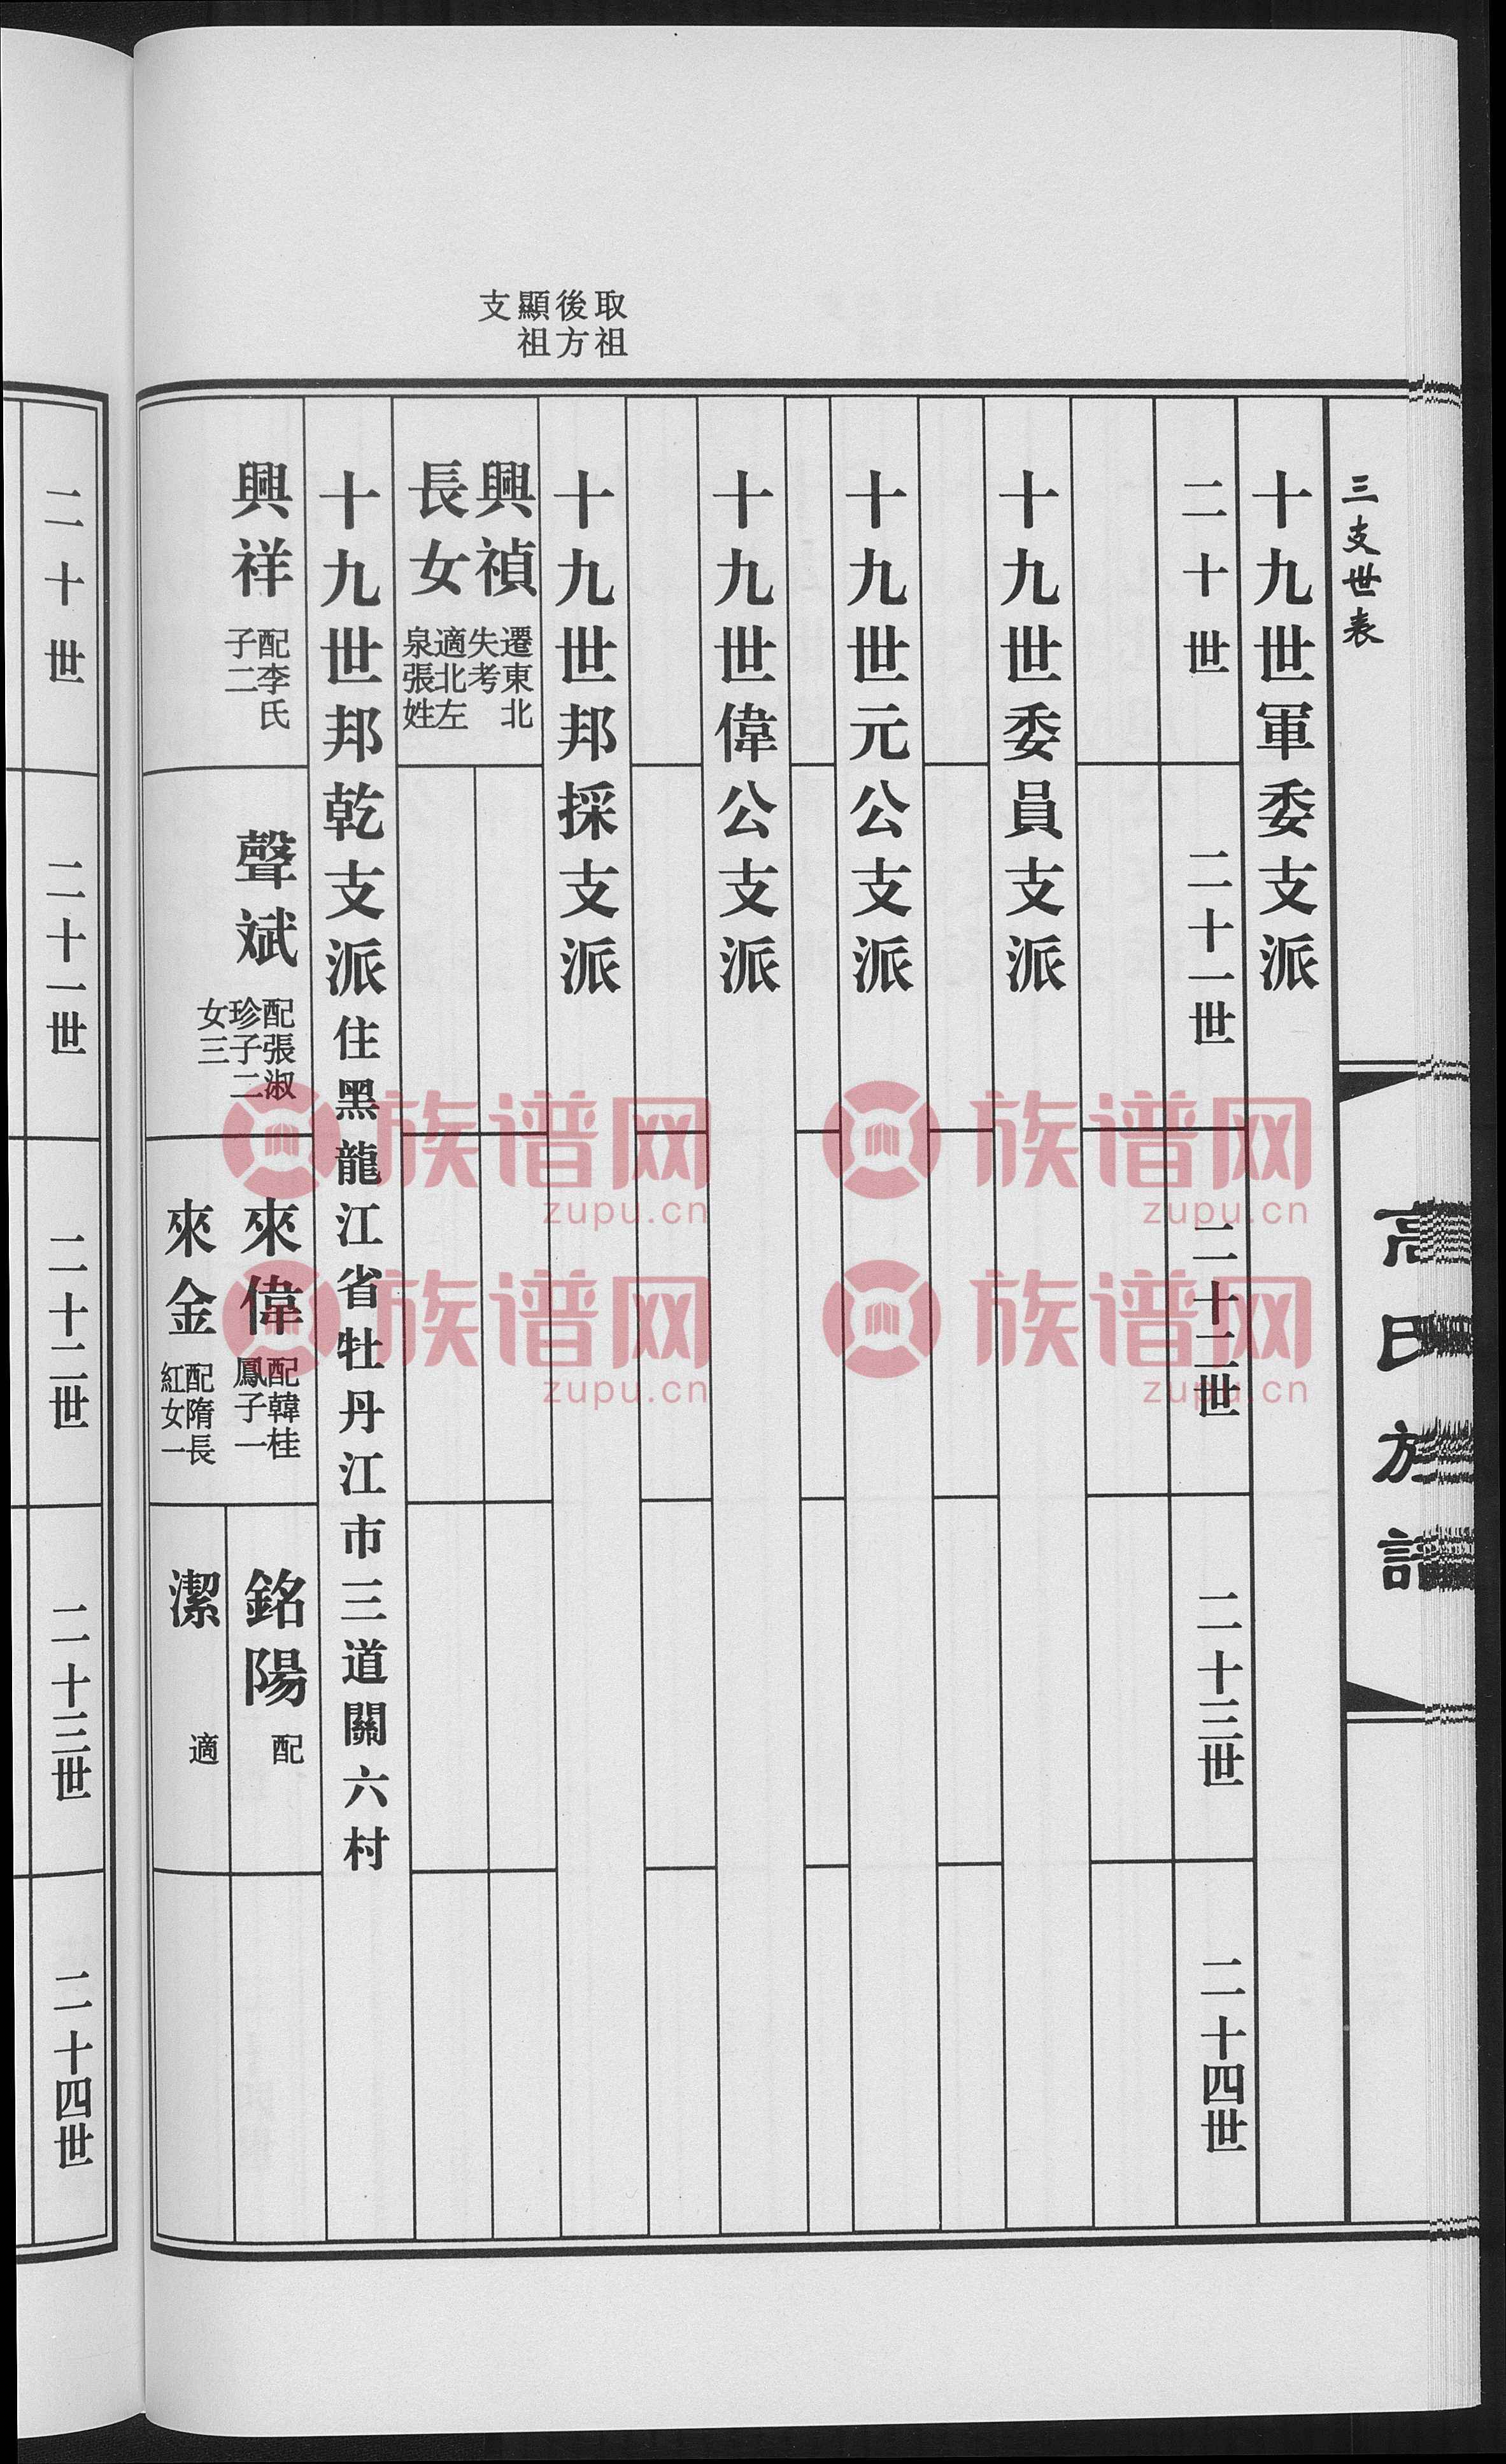 三支世表
高氏族譜
十九世軍委支派
二十世
二十一世
二十二世
二十三世
二十四世
十九世委員支派
十九世元公支派
十九世偉公支派
取祖
後方
顯祖
支
十九世邦採支派
興禎
遷東北
失考
長女
適北左
泉張姓
十九世邦乾支派住黑龍江省牡丹江市三道關六村
興祥
配李氏
子二
聲斌
配張淑
珍子二
女三
來偉
配韓桂
鳳子一
來金
配隋長
紅女一
銘陽
配
潔
適
二十世
二十一世
二十二世
二十三世
二十四世
族谱网
zupu.cn
族谱网
zupu.cn
族谱网
zupu.cn
族谱网
zupu.cn